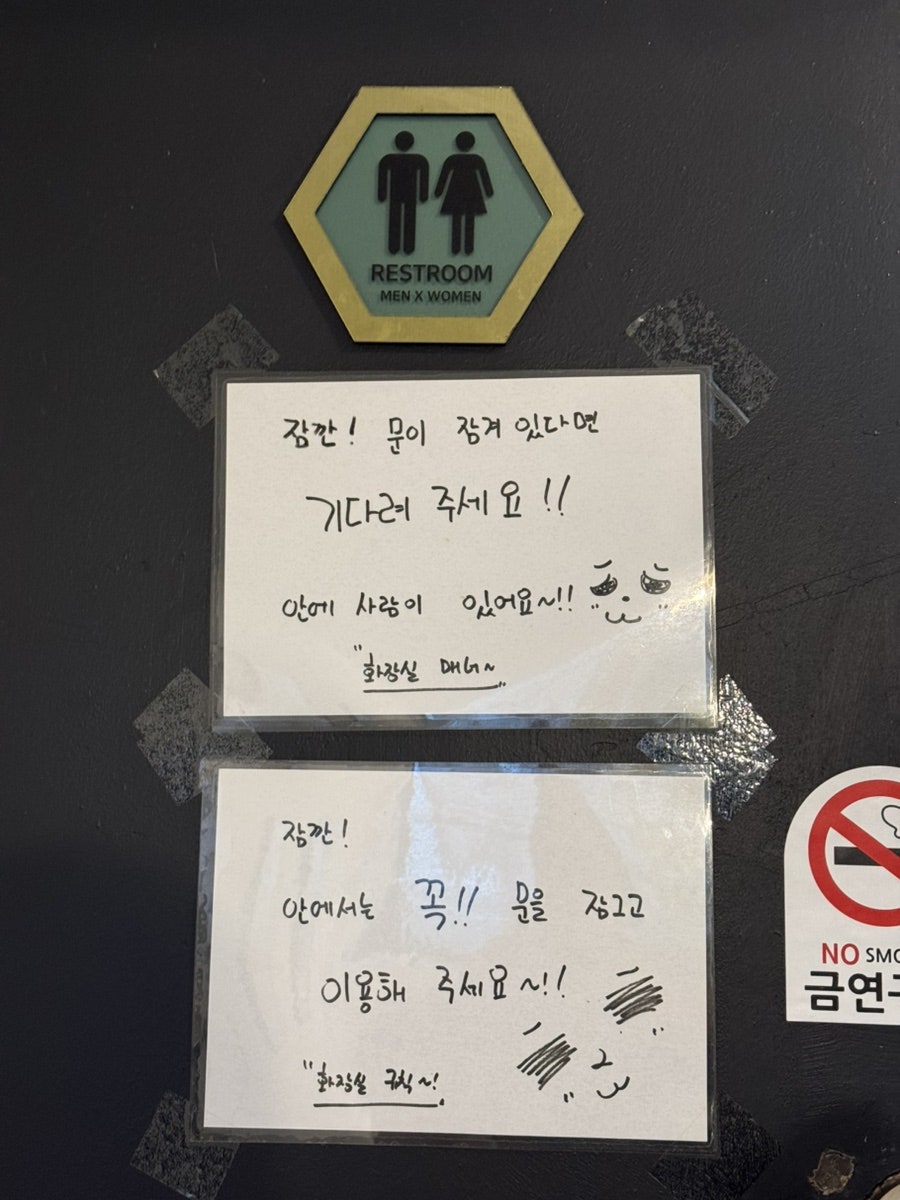 RESTROOM
MEN X WOMEN
잠깐! 문이 잠겨 있다면
기다려 주세요!!
안에 사람이 있어요~!!
"화장실 매너~"
잠깐!
안에서는 꼭!! 문을 잠그고
이용해 주세요~!!
"화장실 규칙~!"
NO SMO
금연구